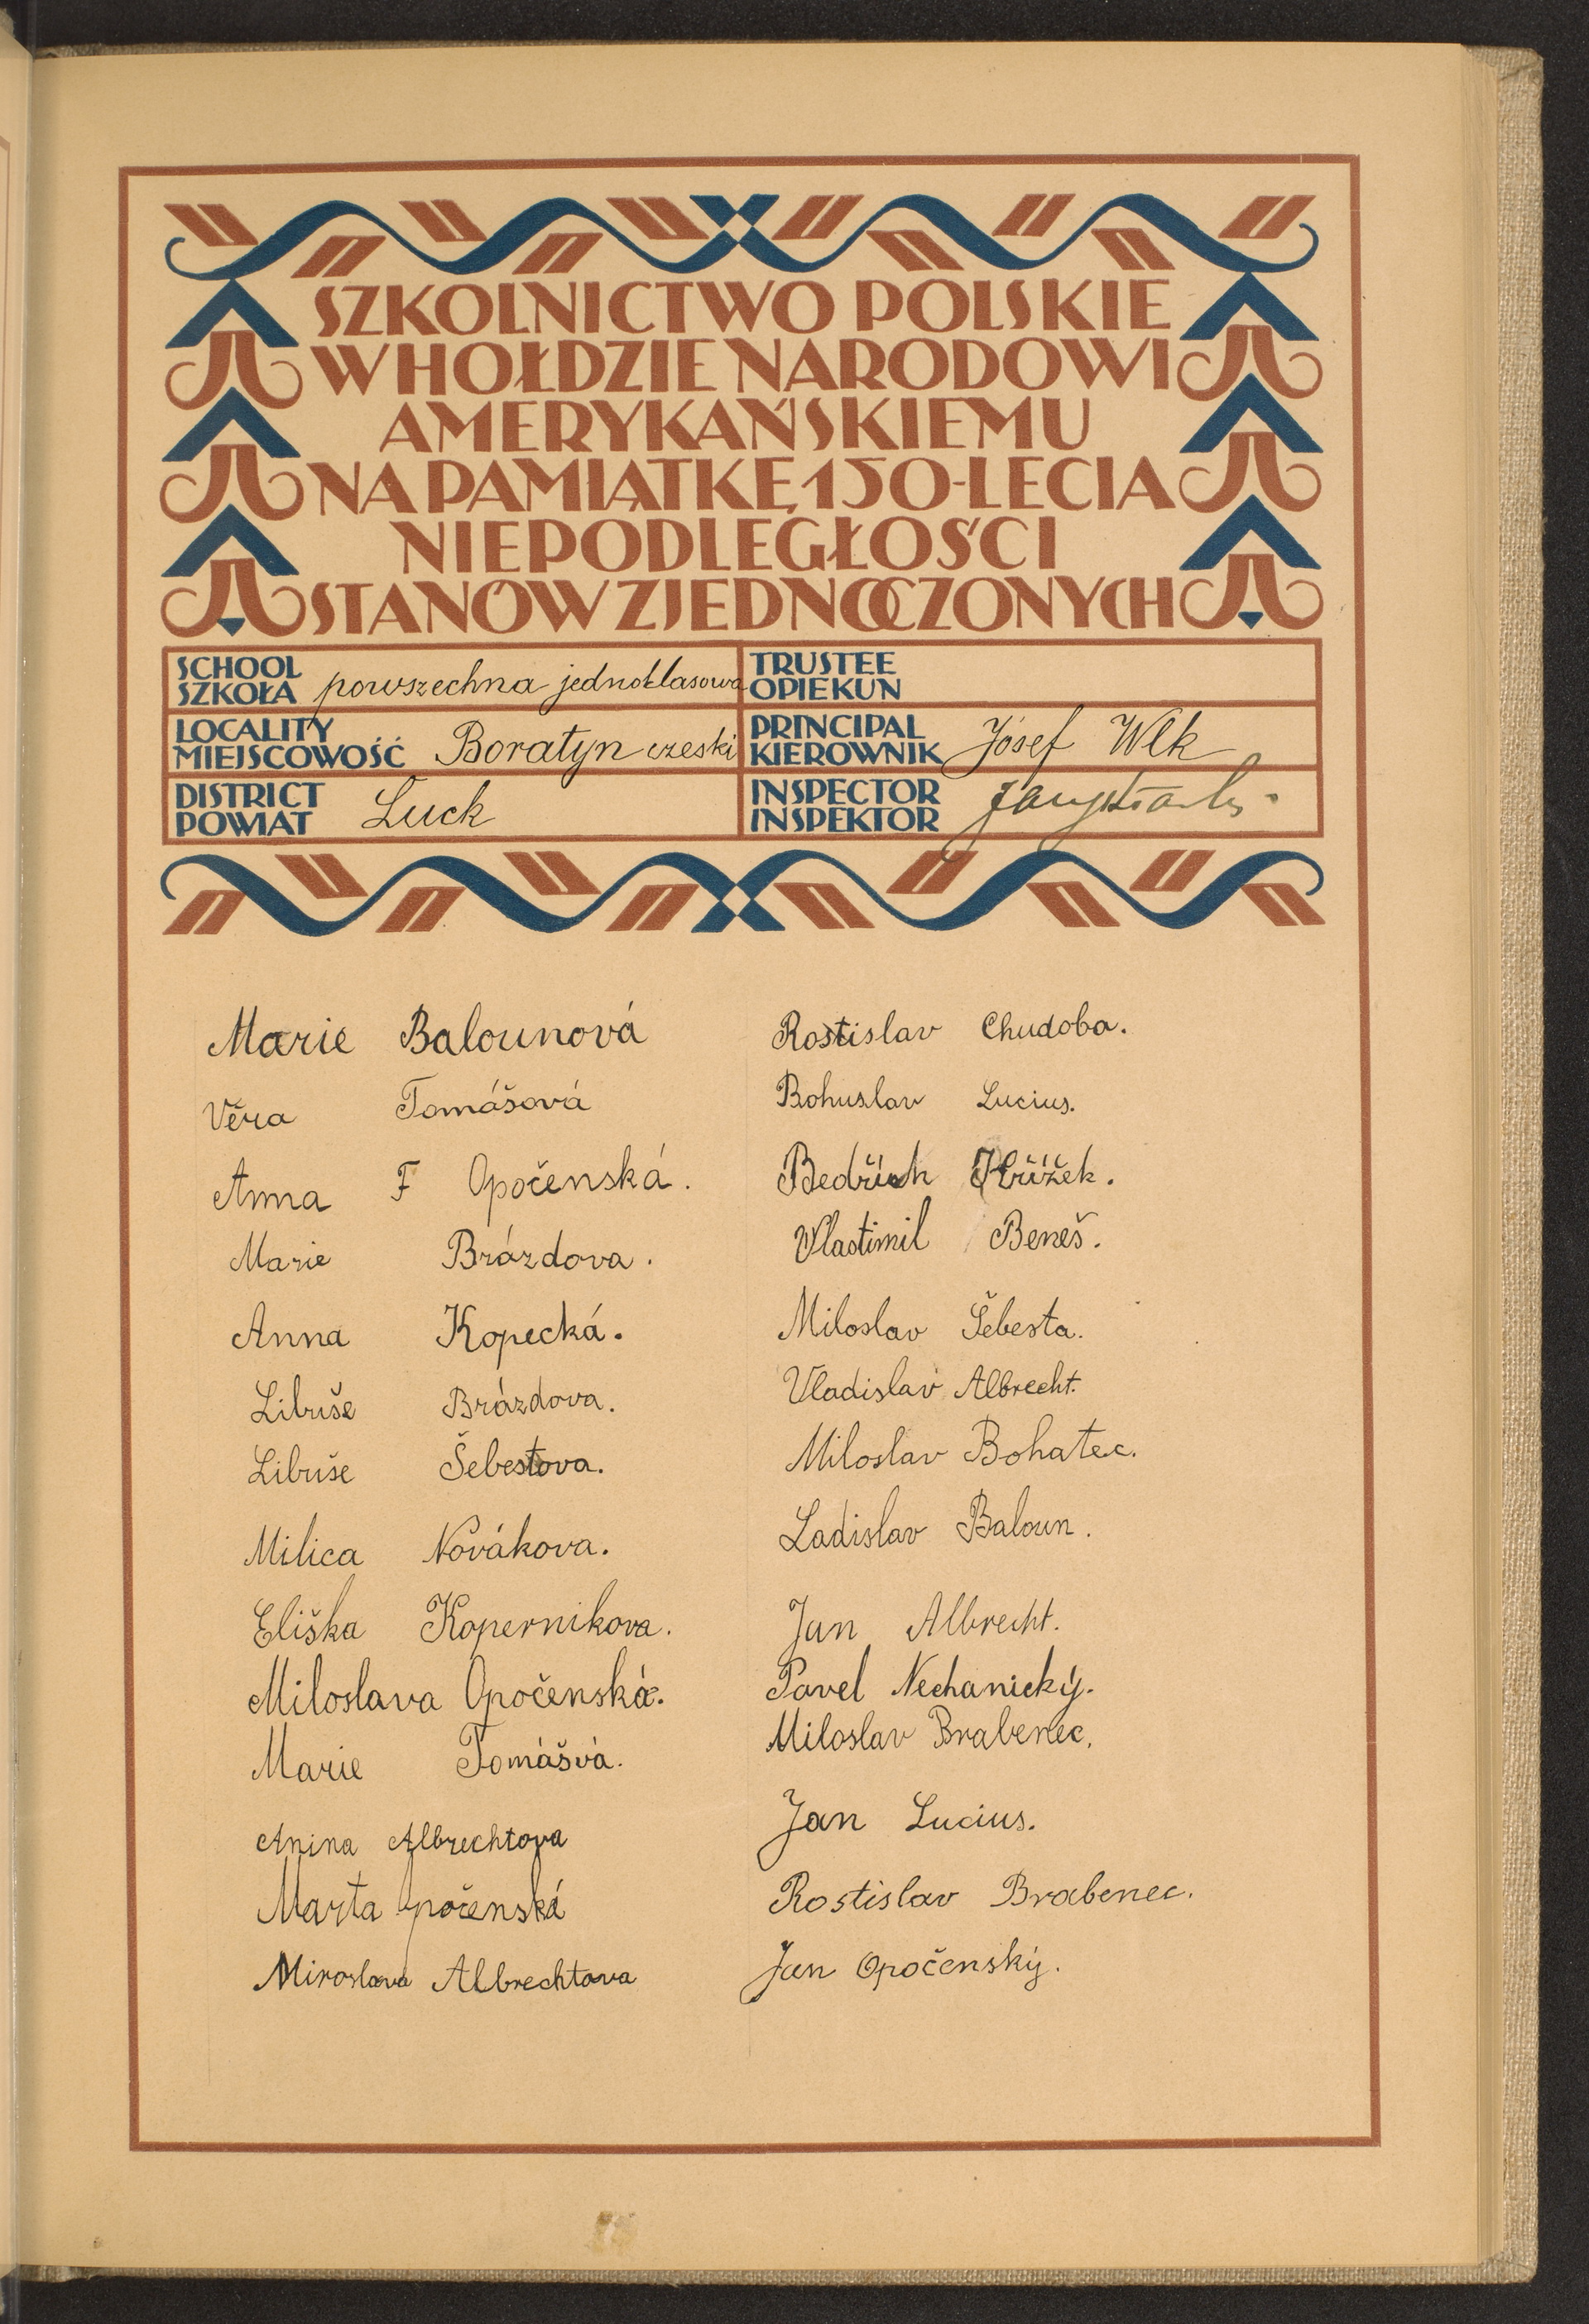 SZKOLNICTWO POLSKIE
W HOŁDZIE NARODOWI
AMERYKAŃSKIEMU
NA PAMIĄTKĘ 150-LECIA
NIEPODLEGŁOŚCI
STANÓW ZJEDNOCZONYCH
SCHOOL
SZKOŁA powszechna jednoklasowa
TRUSTEE
OPIEKUN
LOCALITY
MIEJSCOWOŚĆ Boratyn czeski
PRINCIPAL
KIEROWNIK Józef Wlk
DISTRICT
POWIAT Łuck
INSPECTOR
INSPEKTOR
Marie Balounová
Věra Tomášová
Anna F Opočenská.
Marie Brázdova.
Anna Kopecká.
Libuše Brázdova.
Libuše Šebestova.
Milica Novákova.
Eliška Kopernikova.
Miloslava Opočenská.
Marie Tomášvá.
Anina Albrechtova
Marta Opočenská
Miroslava Albrechtova
Rostislav Chudoba.
Bohuslav Lucius.
Bedřich Křížek.
Vlastimil Beneš.
Miloslav Šebesta.
Vladislav Albrecht.
Miloslav Bohatec.
Ladislav Baloun.
Jan Albrecht.
Pavel Nechanický.
Miloslav Brabenec.
Jan Lucius.
Rostislav Brabenec.
Jan Opočenský.